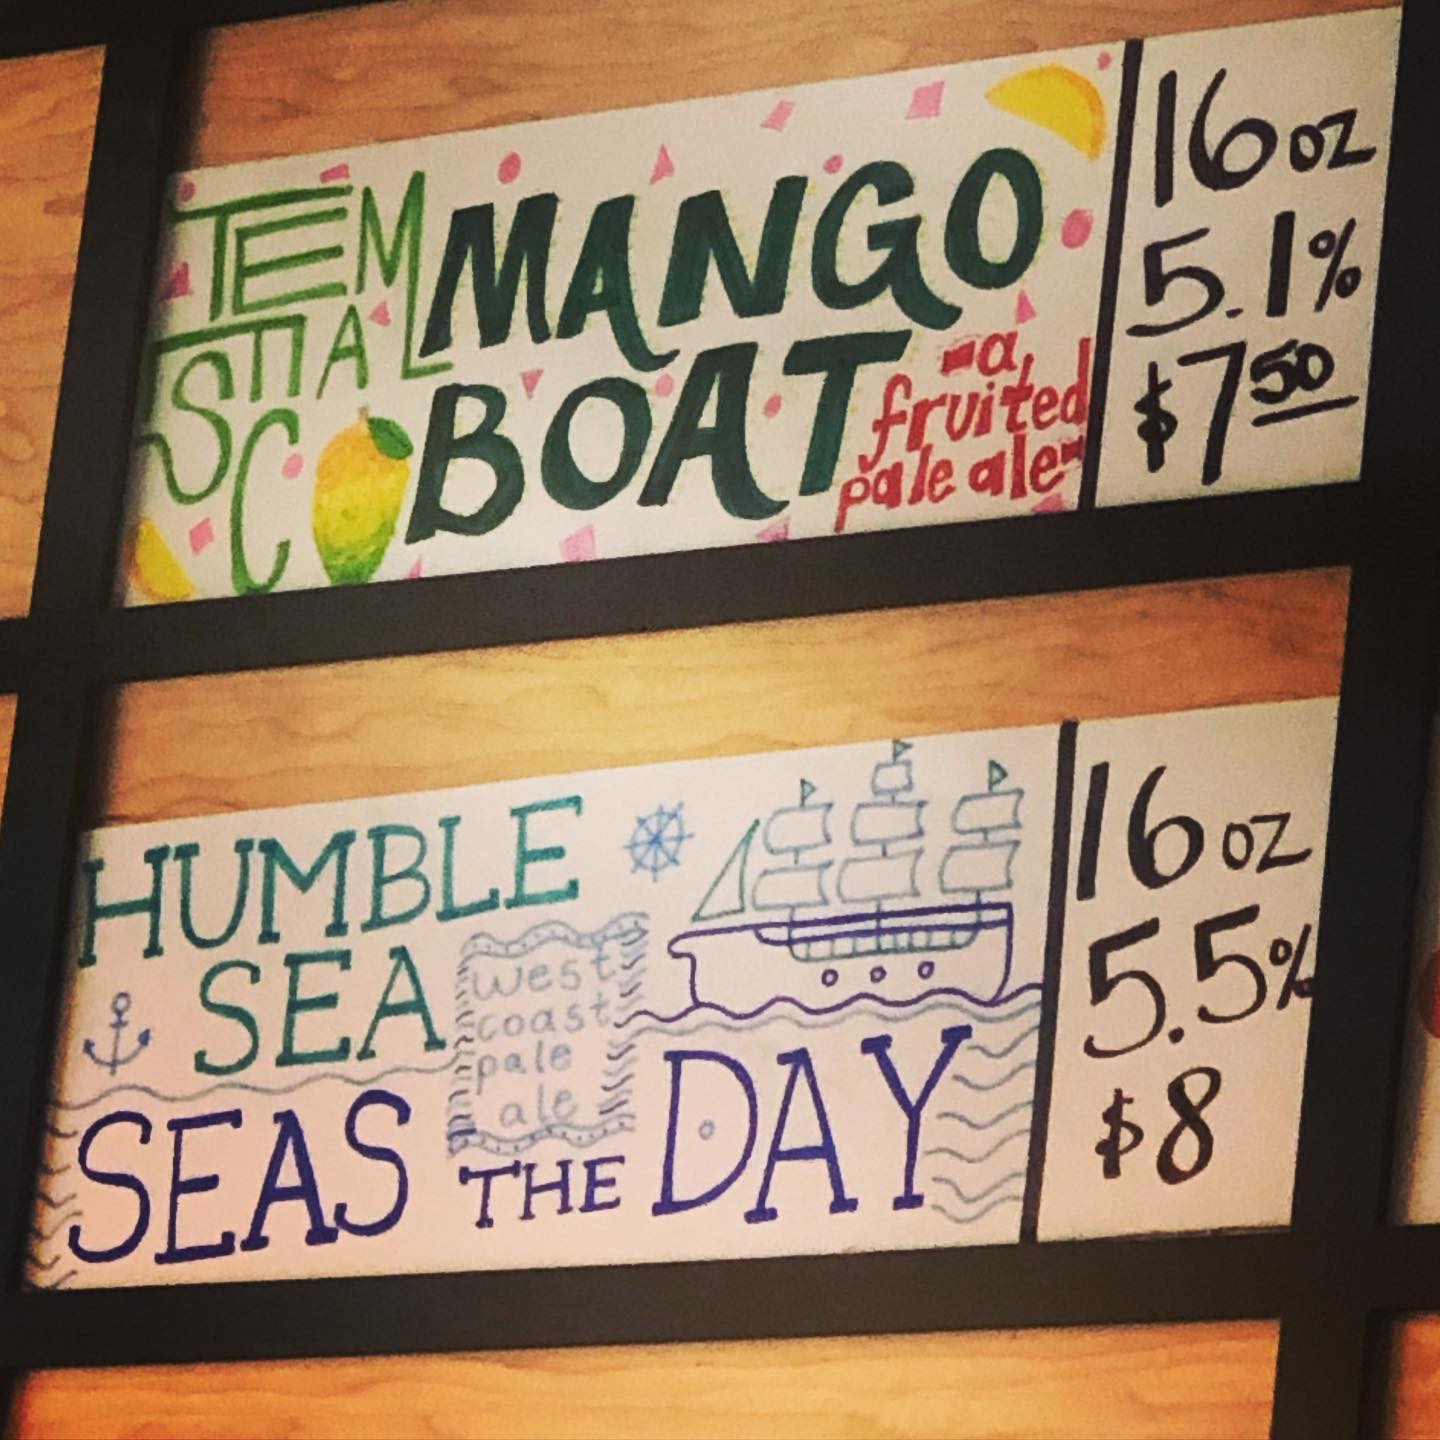 TEM
STIAL
CO
MANGO
BOAT
-a
fruited
pale ale-
16 oz
5.1%
$7 50
HUMBLE
SEA
west
coast
pale
ale
SEAS THE DAY
16 oz
5.5%
$8